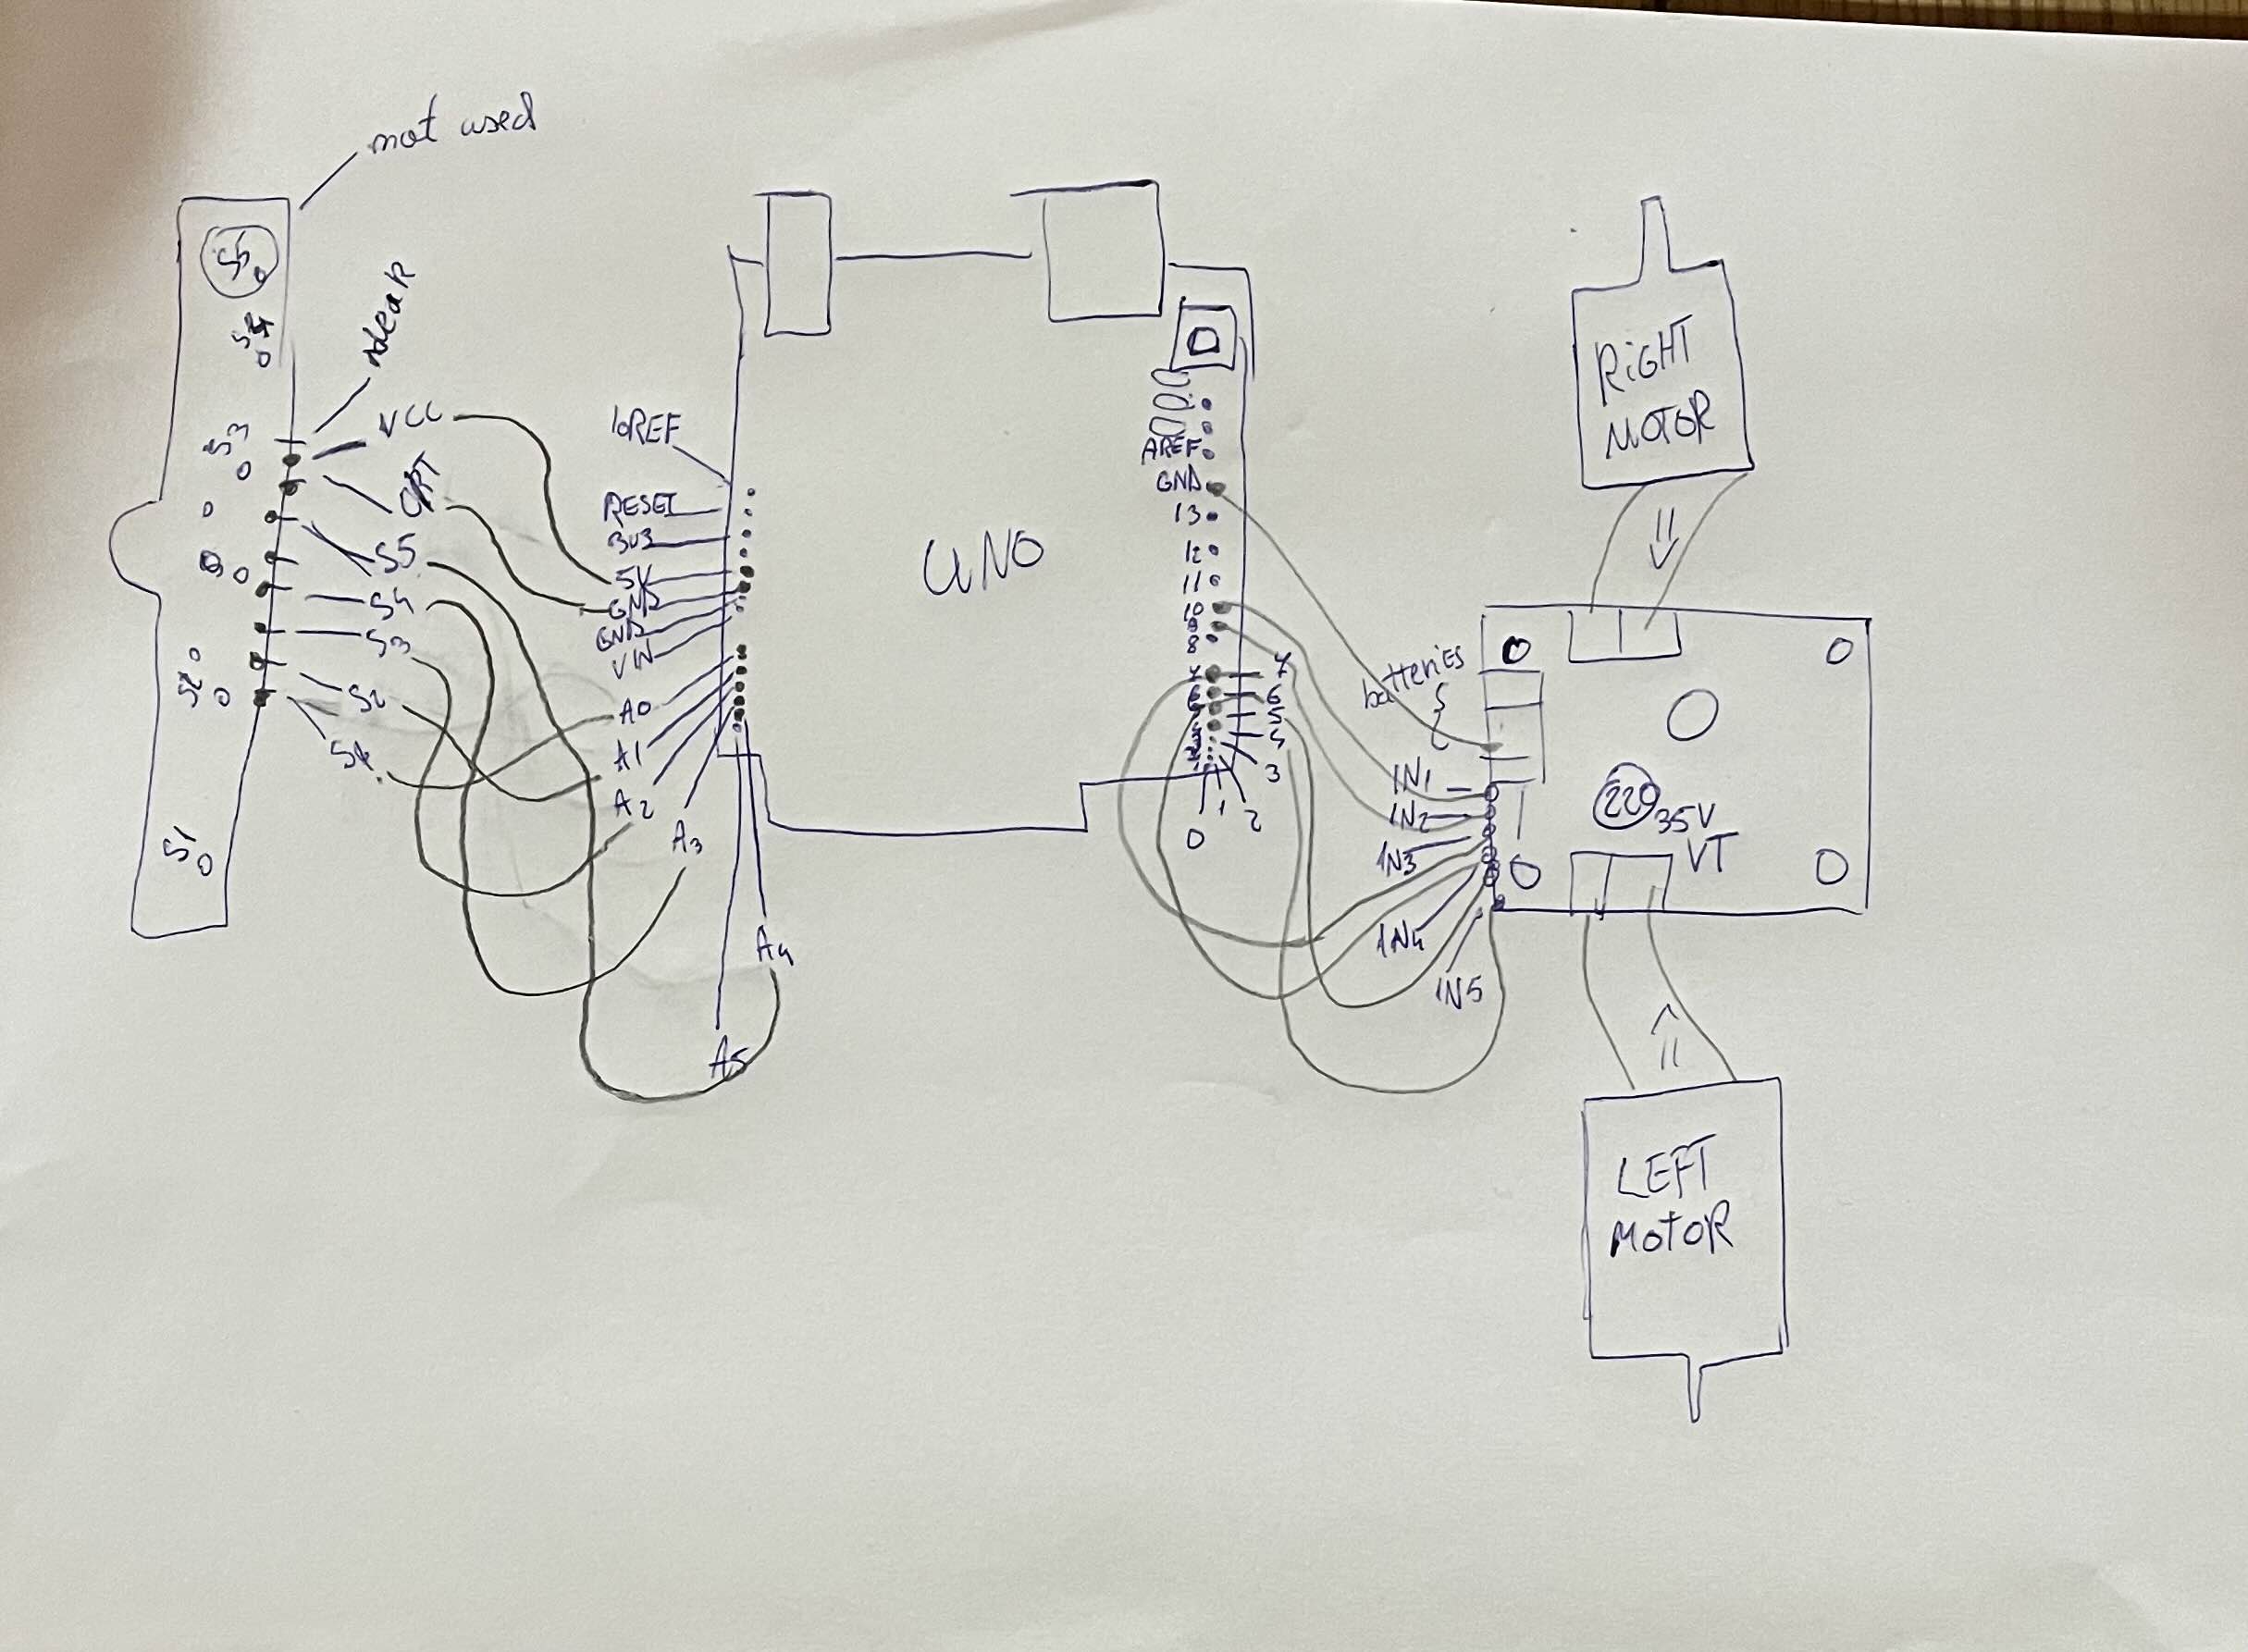 not used
S5
S4
S3
S2
S1
VCC
S5
S4
S3
S2
IOREF
RESET
3V3
5V
GND
GND
VIN
A0
A1
A2
A3
A4
A5
UNO
AREF
GND
13
12
11
10
9
8
7
6
7
6
5
4
3
2
1
0
batteries
IN1
IN2
IN3
IN4
IN5
RiGHT
MOTOR
220
35V
VT
LEFT
MOTOR